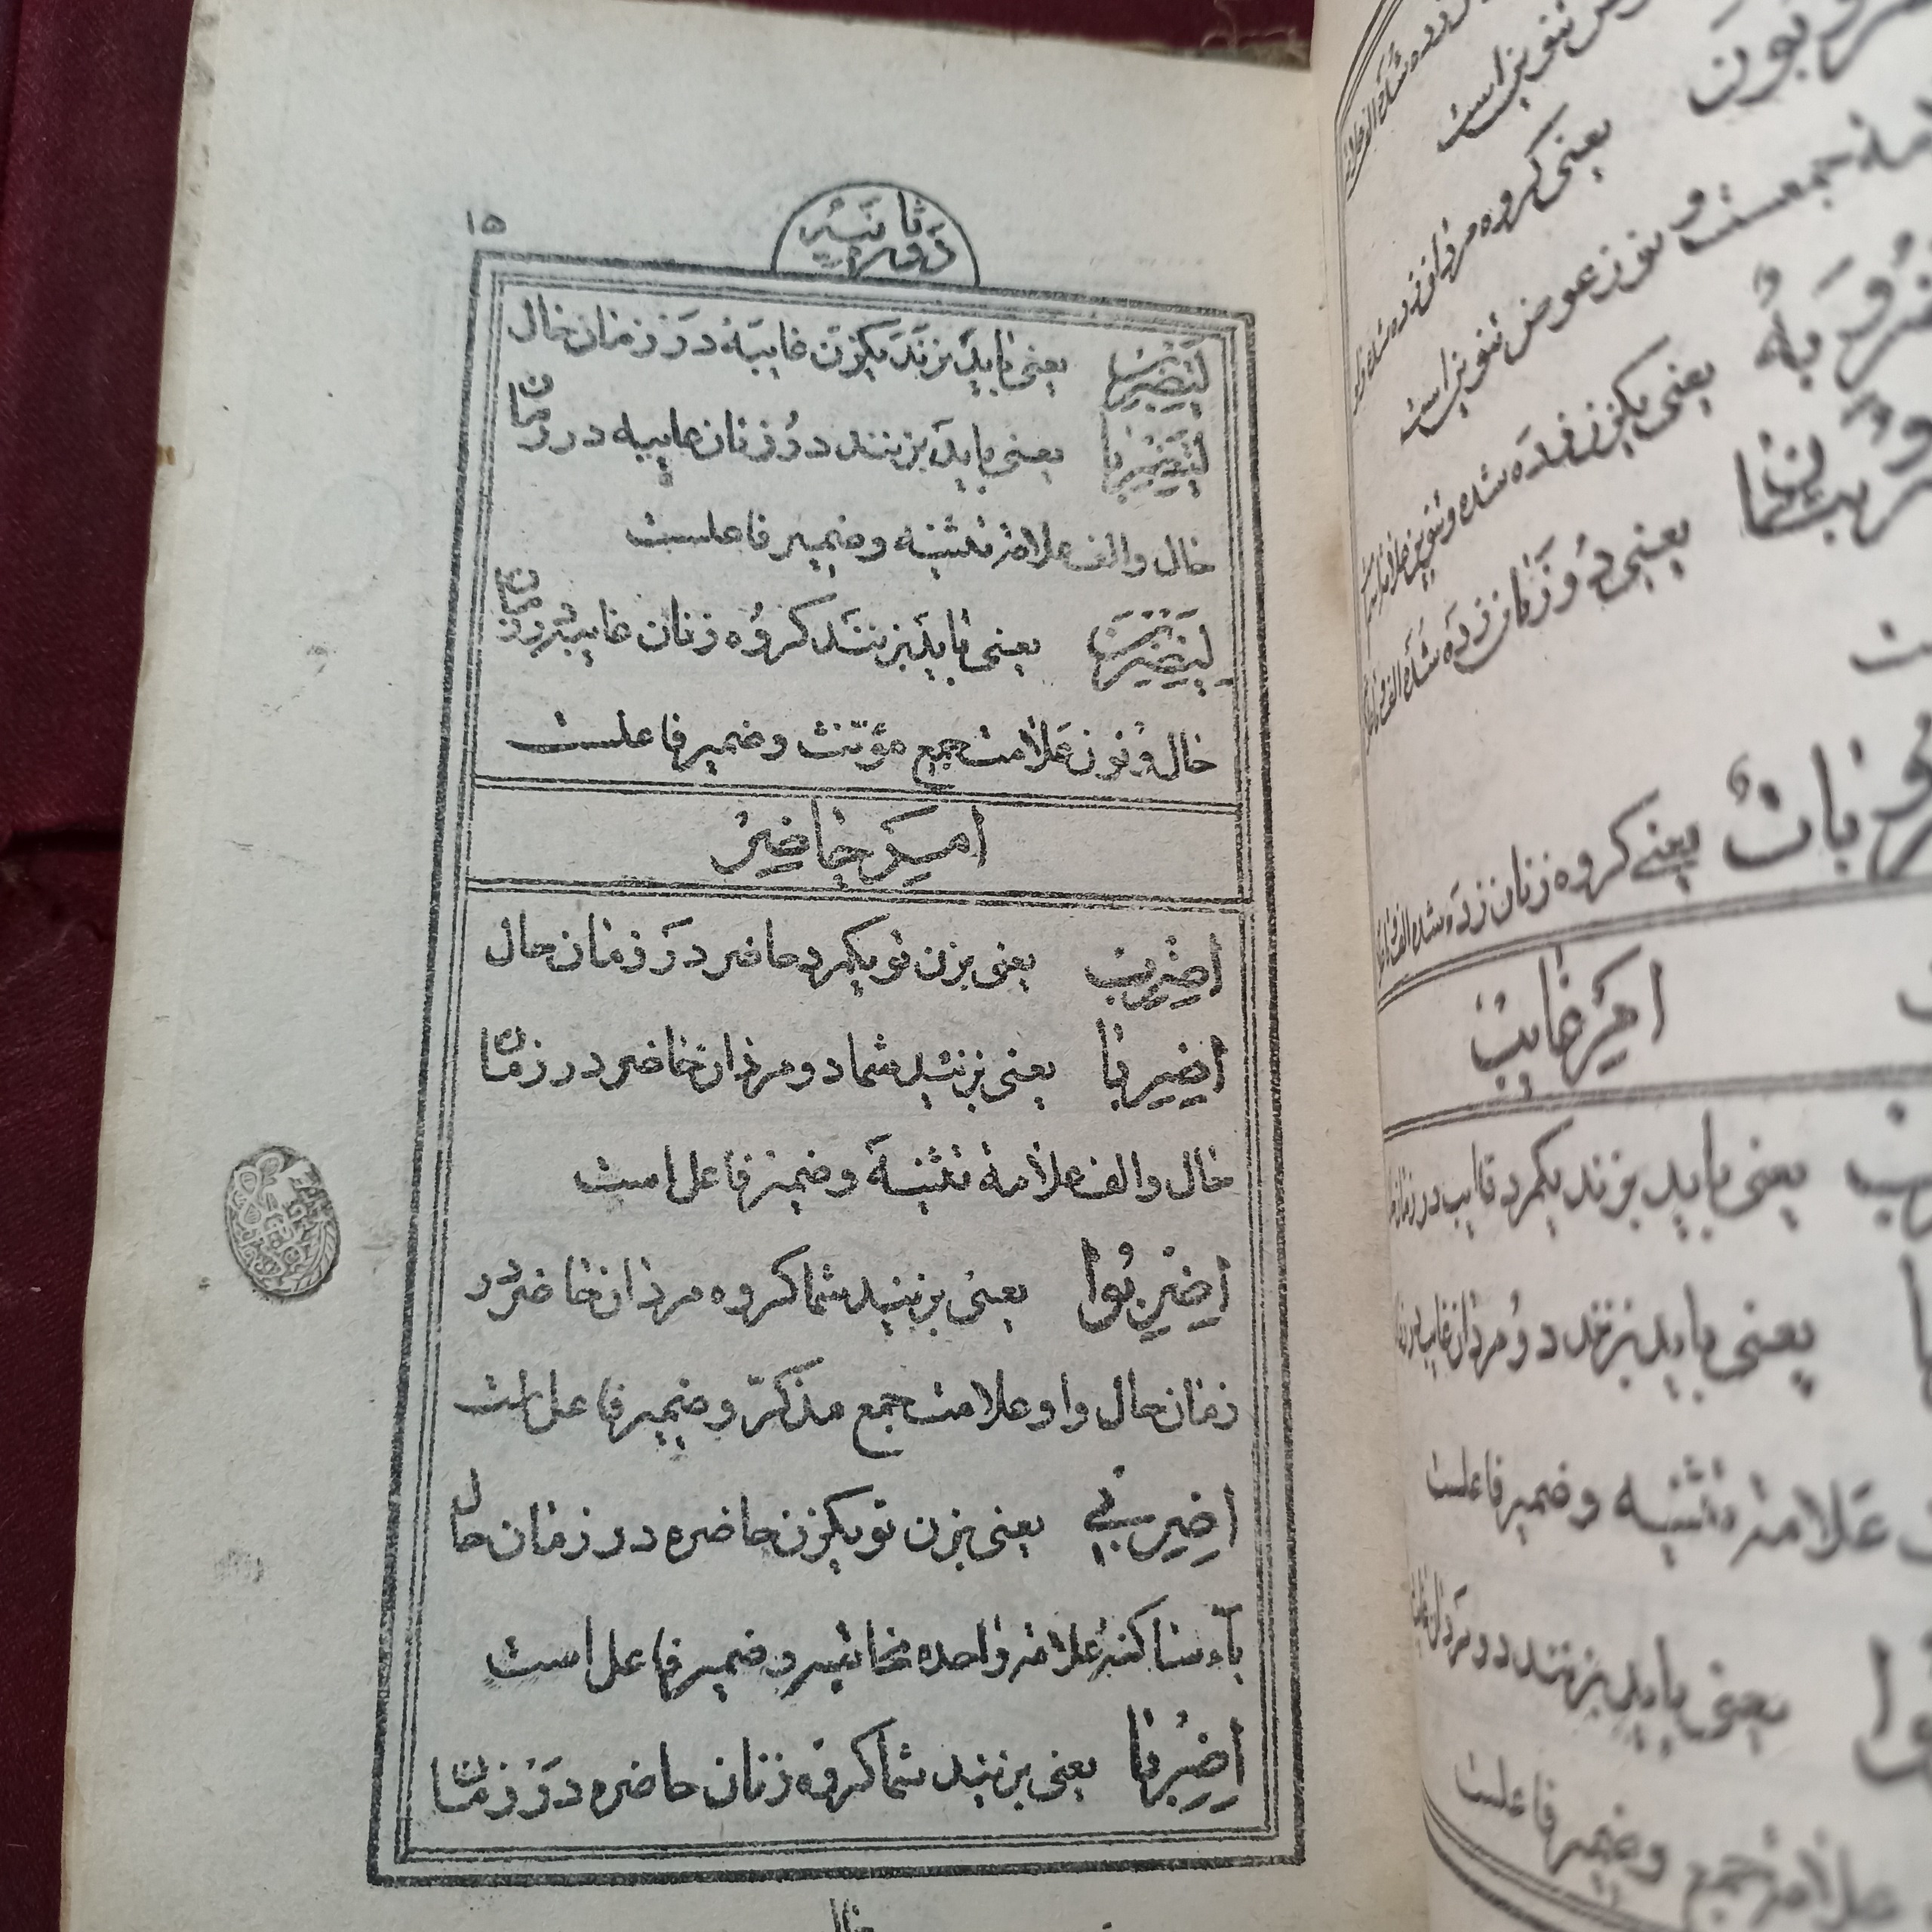 ۱۵
لِتَضْرِبْ یعنی باید بزند یکزن غایبه در زمان حال
لِتَضْرِبا یعنی باید بزنند دو زنان غایبه در زمان
حال والف علامة تثنیه و ضمیر فاعلست
لِیَضْرِبْنَ یعنی باید بزنند کروه زنان غایبه در زمان
حال و نون علامت جمع مؤنث و ضمیر فاعلست
امر حاضر
اضرب یعنی بزن تو یکمرد حاضر در زمان حال
اضربا یعنی بزنید شما دو مردان حاضر در زمان
حال والف علامة تثنیه و ضمیر فاعل است
اضربوا یعنی بزنید شما کروه مردان حاضر در
زمان حال واو علامت جمع مذکّر و ضمیر فاعل است
اضربی یعنی بزن تو یکزن حاضره در زمان حال
یاء ساکنه علامة واحده مخاطبه و ضمیر فاعل است
اضربا یعنی بزنید شما کروه زنان حاضره در زمان
حال
یعنی کروه مردان زده شده
و نون عوض تنوین است
یعنی یکزن زده شده و تنوین
یعنی دو زنان زده شده الف
یعنی کروه زنان زده شده الف
امر غایب
یعنی باید بزند یکمرد غایب در زمان
یعنی باید بزنند دو مردان غایب در
علامة تثنیه و ضمیر فاعلست
یعنی باید بزنند
علامة جمع و ضمیر فاعلست